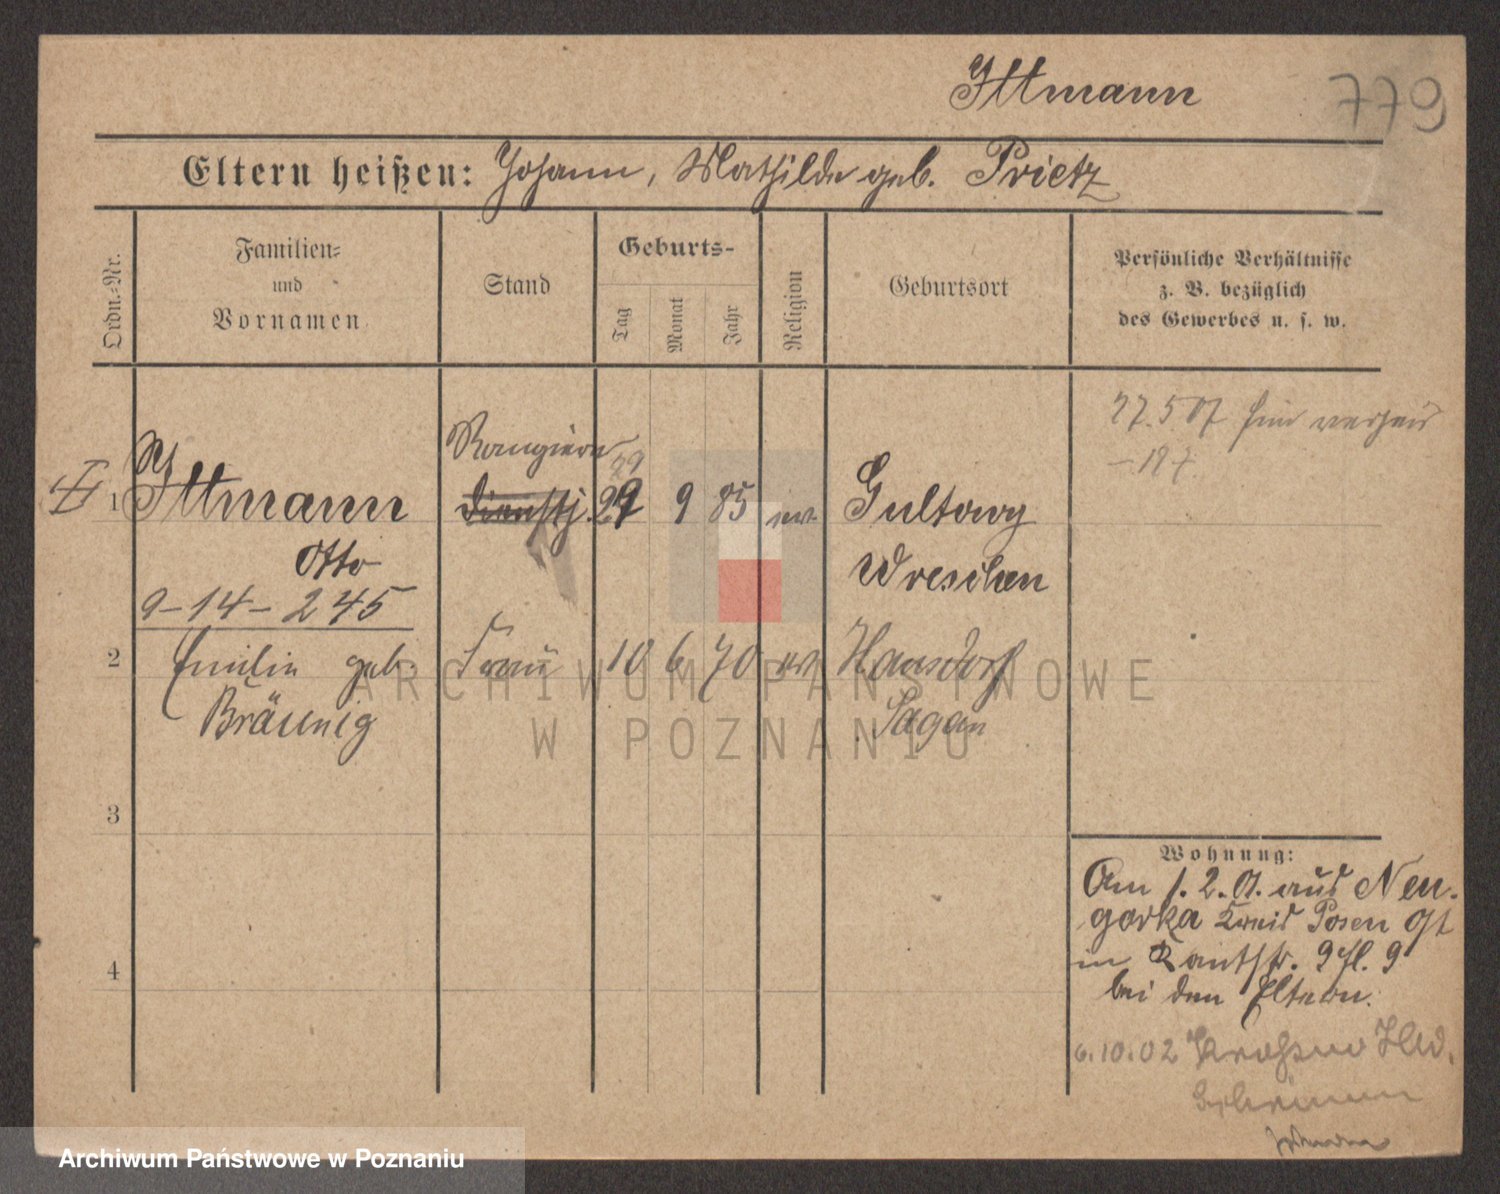 Ittmann
779
Eltern heißen: Johann, Mathilde geb. Prietz
Ordn.-Nr.
Familien- und Vornamen
Stand
Geburts-
Tag
Monat
Jahr
Religion
Geburtsort
Persönliche Verhältnisse
z. B. bezüglich
des Gewerbes u. s. w.
27.5 07
Rangierer
29
1 Ittmann dienstj. 29 9 85 ev. Gultowy
Otto Wreschen
9-14-245
2 Emilie geb. Frau 10 6 70 ev Hansdorf
Bräunig Sagan
3
4
Wohnung:
Am 1.2.01. aus Neu-
gorka Kreis Posen Ot
in Kantstr. 9 Fl. 9
bei den Eltern.
6.10.02
ARCHIWUM PAŃSTWOWE
W POZNANIU
Archiwum Państwowe w Poznaniu